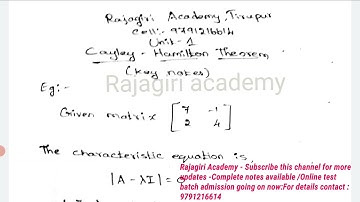 Rajagiri Academy, Tirupur
Cell:- 9791216614
Unit-1
Cayley-Hamilton Theorem
(Key notes)
Rajagiri academy
Eg:-
Given matrix [ 7 -1
2 4 ]
The characteristic equation is,
|A - λI| =
Rajagiri Academy - Subscribe this channel for more
updates -Complete notes available /Online test
batch admission going on now:For details contact :
9791216614